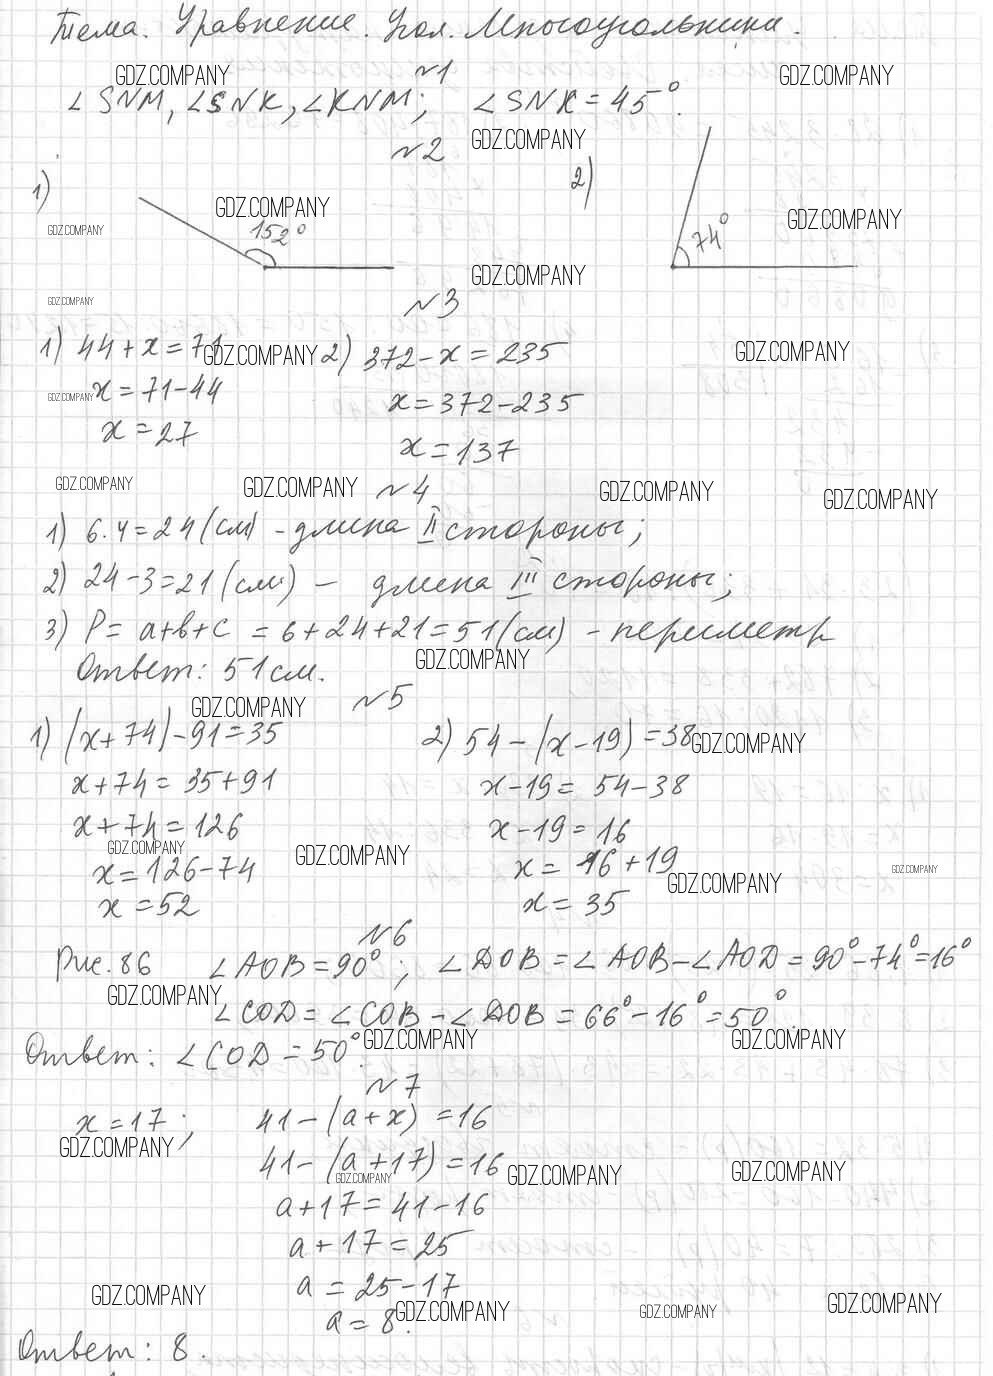 Тема. Уравнение. Угол. Многоугольники.
GDZ.COMPANY №1 GDZ.COMPANY
∠SNM, ∠SNK, ∠KNM; ∠SNK = 45°.
№2 GDZ.COMPANY
1) 2)
GDZ.COMPANY GDZ.COMPANY
GDZ.COMPANY 152° 74°
GDZ.COMPANY
GDZ.COMPANY №3
1) 44+x=71 GDZ.COMPANY 2) 372-x=235 GDZ.COMPANY
GDZ.COMPANY x=71-44 x=372-235
x=27 x=137
GDZ.COMPANY GDZ.COMPANY №4 GDZ.COMPANY GDZ.COMPANY
1) 6·4=24 (см) - длина II стороны;
2) 24-3=21 (см) - длина III стороны;
3) P= a+b+c = 6+24+21=51 (см) - периметр
Ответ: 51 см. GDZ.COMPANY
GDZ.COMPANY №5
1) (x+74)-91=35 2) 54-(x-19)=38 GDZ.COMPANY
x+74=35+91 x-19=54-38
x+74=126 x-19=16
GDZ.COMPANY GDZ.COMPANY
x=126-74 x=16+19 GDZ.COMPANY GDZ.COMPANY
x=52 x=35
№6
Рис. 86 ∠AOB=90°; ∠DOB=∠AOB-∠AOD=90°-74°=16°
GDZ.COMPANY ∠COD=∠COB-∠DOB=66°-16°=50°.
Ответ: ∠COD=50°. GDZ.COMPANY GDZ.COMPANY
№7
x=17; 41-(a+x)=16
GDZ.COMPANY 41-(a+17)=16 GDZ.COMPANY GDZ.COMPANY
GDZ.COMPANY
a+17=41-16
a+17=25
GDZ.COMPANY a=25-17
a=8. GDZ.COMPANY GDZ.COMPANY GDZ.COMPANY
Ответ: 8.